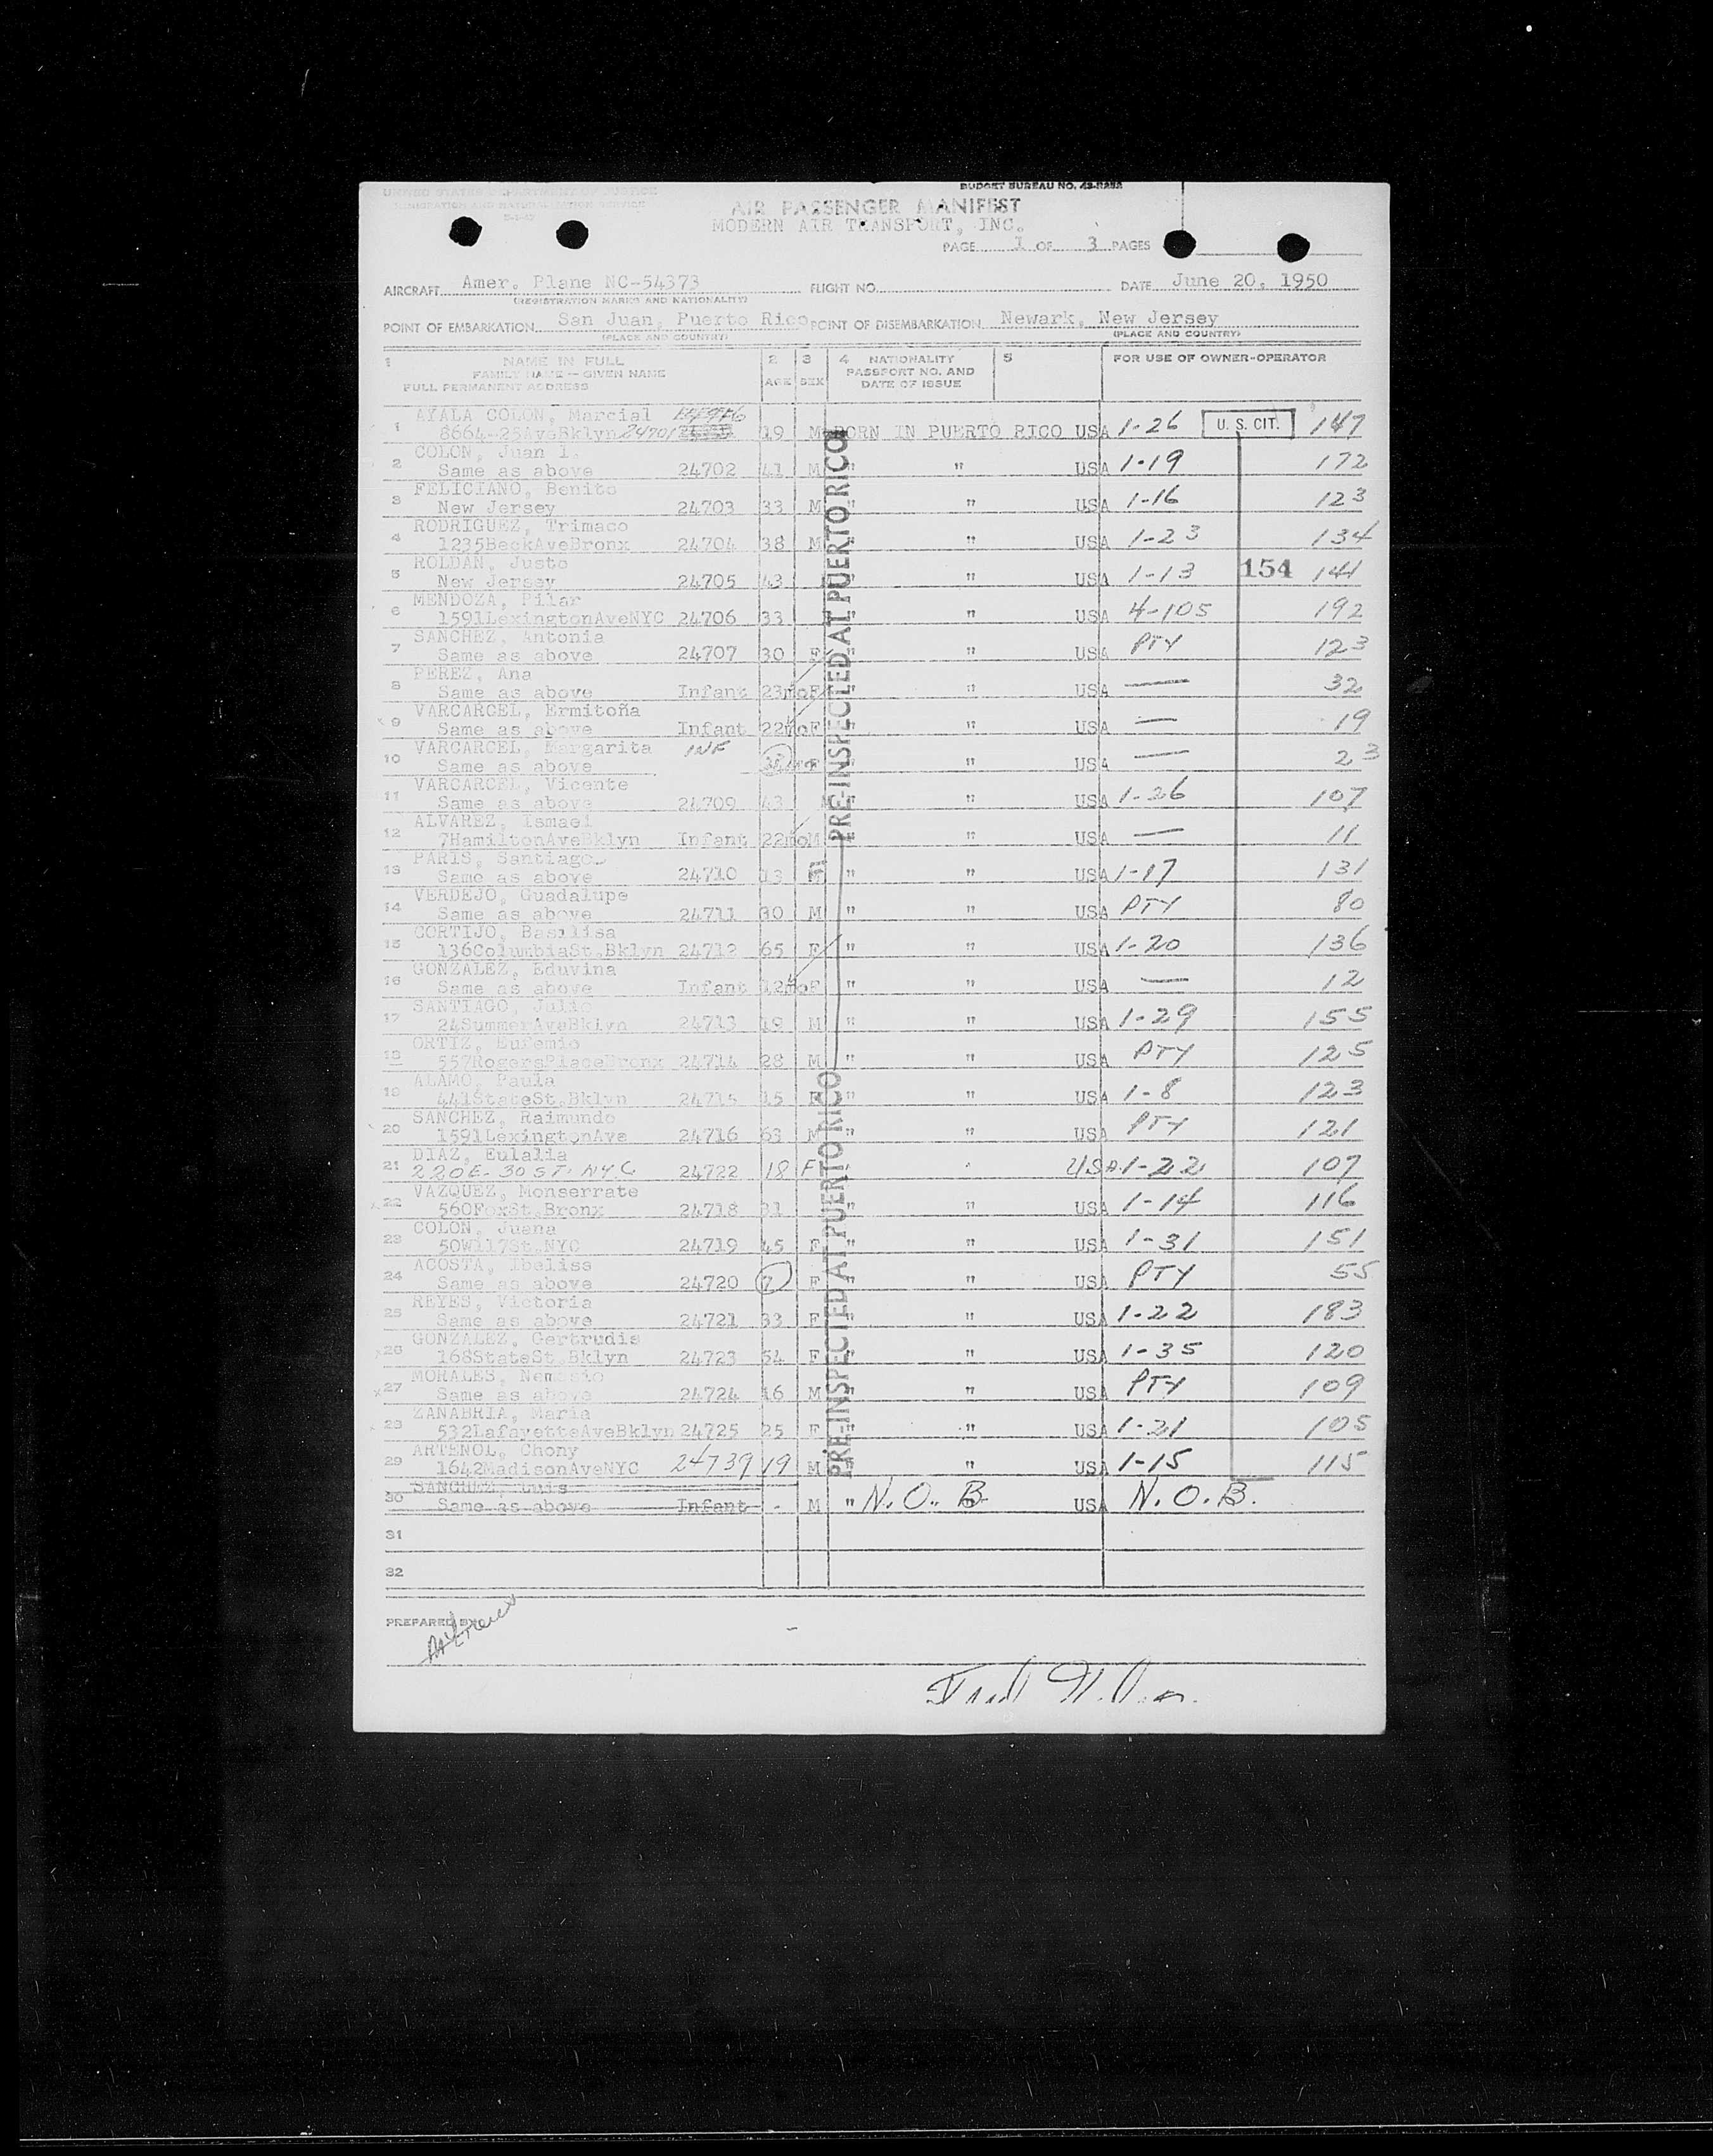 UNITED STATES DEPARTMENT OF JUSTICE
IMMIGRATION AND NATURALIZATION SERVICE
BUDGET BUREAU NO.
AIR PASSENGER MANIFEST
MODERN AIR TRANSPORT, INC.
PAGE 1 OF 3 PAGES
AIRCRAFT Amer. Plane NC-54373 FLIGHT NO. DATE June 20, 1950
(REGISTRATION MARKS AND NATIONALITY)
POINT OF EMBARKATION San Juan, Puerto Rico POINT OF DISEMBARKATION Newark, New Jersey
(PLACE AND COUNTRY) (PLACE AND COUNTRY)
1 NAME IN FULL 2 3 4 NATIONALITY 5 FOR USE OF OWNER-OPERATOR
FAMILY NAME — GIVEN NAME AGE SEX PASSPORT NO. AND
FULL PERMANENT ADDRESS DATE OF ISSUE
AYALA COLON, Marcial
1 8664-25AveBklyn 24701 19 M BORN IN PUERTO RICO USA 1-26 U. S. CIT. 147
COLON, Juan
2 Same as above 24702 41 M " " USA 1-19 172
FELICIANO, Benito
3 New Jersey 24703 33 M " " USA 1-16 123
RODRIGUEZ, Trimaco
4 1235BeckAveBronx 24704 38 M " " USA 1-23 134
ROLDAN, Justo
5 New Jersey 24705 43 " " USA 1-13 154 141
MENDOZA, Pilar
6 1591LexingtonAveNYC 24706 33 " " USA 4-105 192
SANCHEZ, Antonia
7 Same as above 24707 30 F " " USA PTY 123
PEREZ, Ana
8 Same as above Infant 23mo F " " USA — 32
VARCARCEL, Ermitoña
x 9 Same as above Infant 22mo F " " USA — 19
VARCARCEL, Margarita INF
10 Same as above " " USA — 23
VARCARCEL, Vicente
11 Same as above 24709 43 " " USA 1-26 107
ALVAREZ, Ismael
12 7HamiltonAveBklyn Infant 22mo M " " USA — 11
PARIS, Santiago
13 Same as above 24710 13 M " " USA 1-17 131
VERDEJO, Guadalupe
14 Same as above 24711 30 M " " USA PTY 80
CORTIJO, Basilisa
15 136ColumbiaSt.Bklyn 24712 65 F " " USA 1-20 136
GONZALEZ, Eduvina
16 Same as above Infant 12mo F " " USA — 12
SANTIAGO, Julio
17 24SummerAveBklyn 24713 19 M " " USA 1-29 155
ORTIZ, Eufemio
18 557RogersPlaceBronx 24714 28 M " " USA PTY 125
ALAMO, Paula
19 441StateSt.Bklyn 24715 15 F " " USA 1-8 123
SANCHEZ, Raimundo
20 1591LexingtonAve 24716 63 M " " USA PTY 121
DIAZ, Eulalia
21 220 E- 30 ST. NYC 24722 18 F USA 1-22 107
VAZQUEZ, Monserrate
22 560FoxSt.Bronx 24718 31 " " USA 1-14 116
COLON, Juana
23 50W117St.NYC 24719 45 F " " USA 1-31 151
ACOSTA, Ibelise
24 Same as above 24720 7 F " " USA PTY 55
REYES, Victoria
25 Same as above 24721 33 F " " USA 1-22 183
GONZALEZ, Gertrudis
26 168StateSt.Bklyn 24723 54 F " " USA 1-35 120
MORALES, Nemesio
x27 Same as above 24724 16 M " " USA PTY 109
ZANABRIA, Maria
28 532LafayetteAveBklyn 24725 25 F " " USA 1-21 105
ARTENOL, Chony
29 1642MadisonAveNYC 24739 19 M " " USA 1-15 115
SANCHEZ, Luis
30 Same as above Infant - M " N.O.B. USA N.O.B.
31
32
PRE-INSPECTED AT PUERTO RICO
PRE-INSPECTED AT PUERTO RICO
PREPARED BY